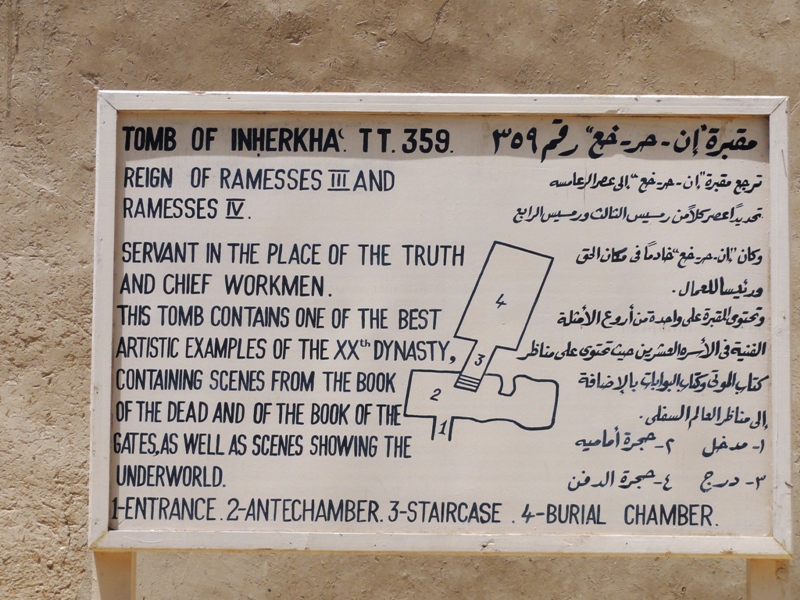 TOMB OF INHERKHAʿ. TT. 359.
REIGN OF RAMESSES III AND
RAMESSES IV.
SERVANT IN THE PLACE OF THE TRUTH
AND CHIEF WORKMEN.
THIS TOMB CONTAINS ONE OF THE BEST
ARTISTIC EXAMPLES OF THE XXth DYNASTY,
CONTAINING SCENES FROM THE BOOK
OF THE DEAD AND OF THE BOOK OF THE
GATES, AS WELL AS SCENES SHOWING THE
UNDERWORLD.
مقبرة "إن - حر - خع" رقم ٣٥٩
ترجع مقبرة "إن - حر - خع" إلى عصر الرعامسه
تحديداً عصر كلاً من رمسيس الثالث ورمسيس الرابع
وكان "إن - حر - خع" خادماً فى مكان الحق
ورئيسا للعمال .
وتحتوى المقبرة على واحدة من أروع الأمثلة
الفنية فى الأسره العشرين حيث تحتوى على مناظر
كتاب الموتى وكتاب البوابات بالإضافة
إلى مناظر العالم السفلى .
١- مدخل ٢- حجرة أماميه
٣- درج ٤- حجرة الدفن
4
3
2
1
1-ENTRANCE. 2-ANTECHAMBER. 3-STAIRCASE . 4-BURIAL CHAMBER.